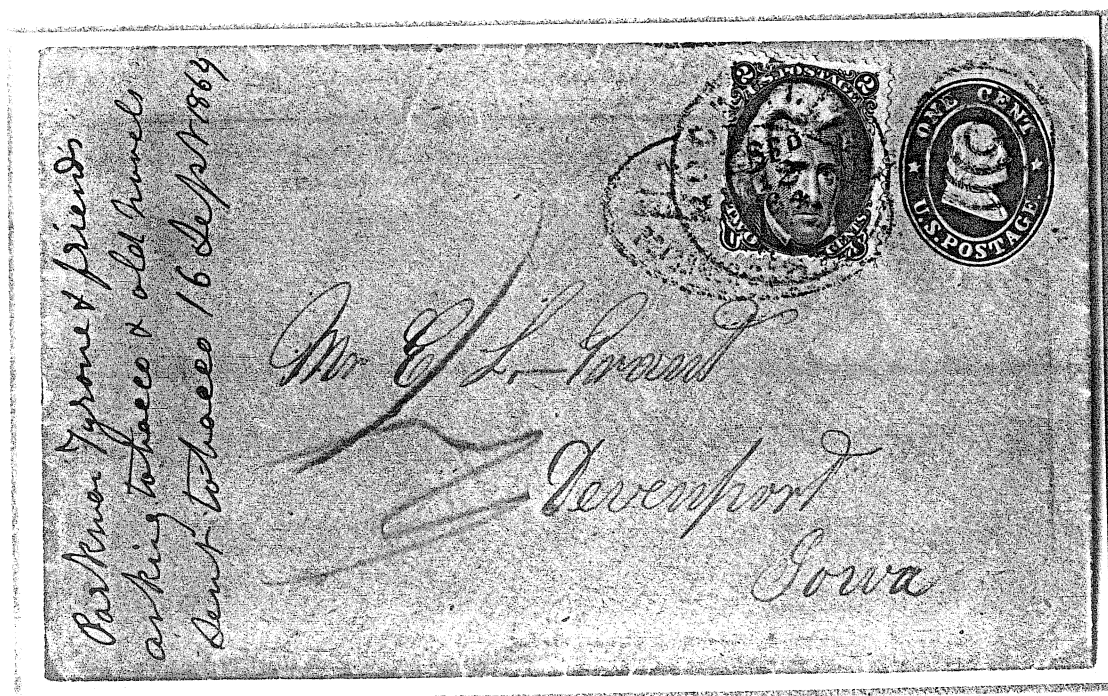 Parkmer Tyrone & friends
asking tobacco & old novels
sent tobacco 16 Sept 1864
2 U.S. POSTAGE 2
TWO CENTS
ONE CENT
U.S. POSTAGE
ROCK
Mr E L. Grant
Devenport
Iowa